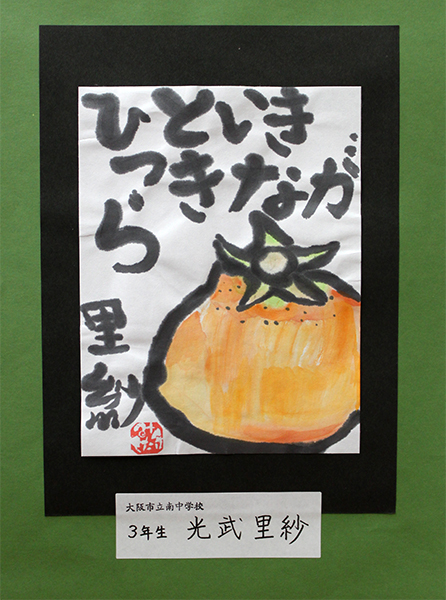 ひといき
つきなが
ら
里紗
大阪市立南中学校
3年生 光武里紗